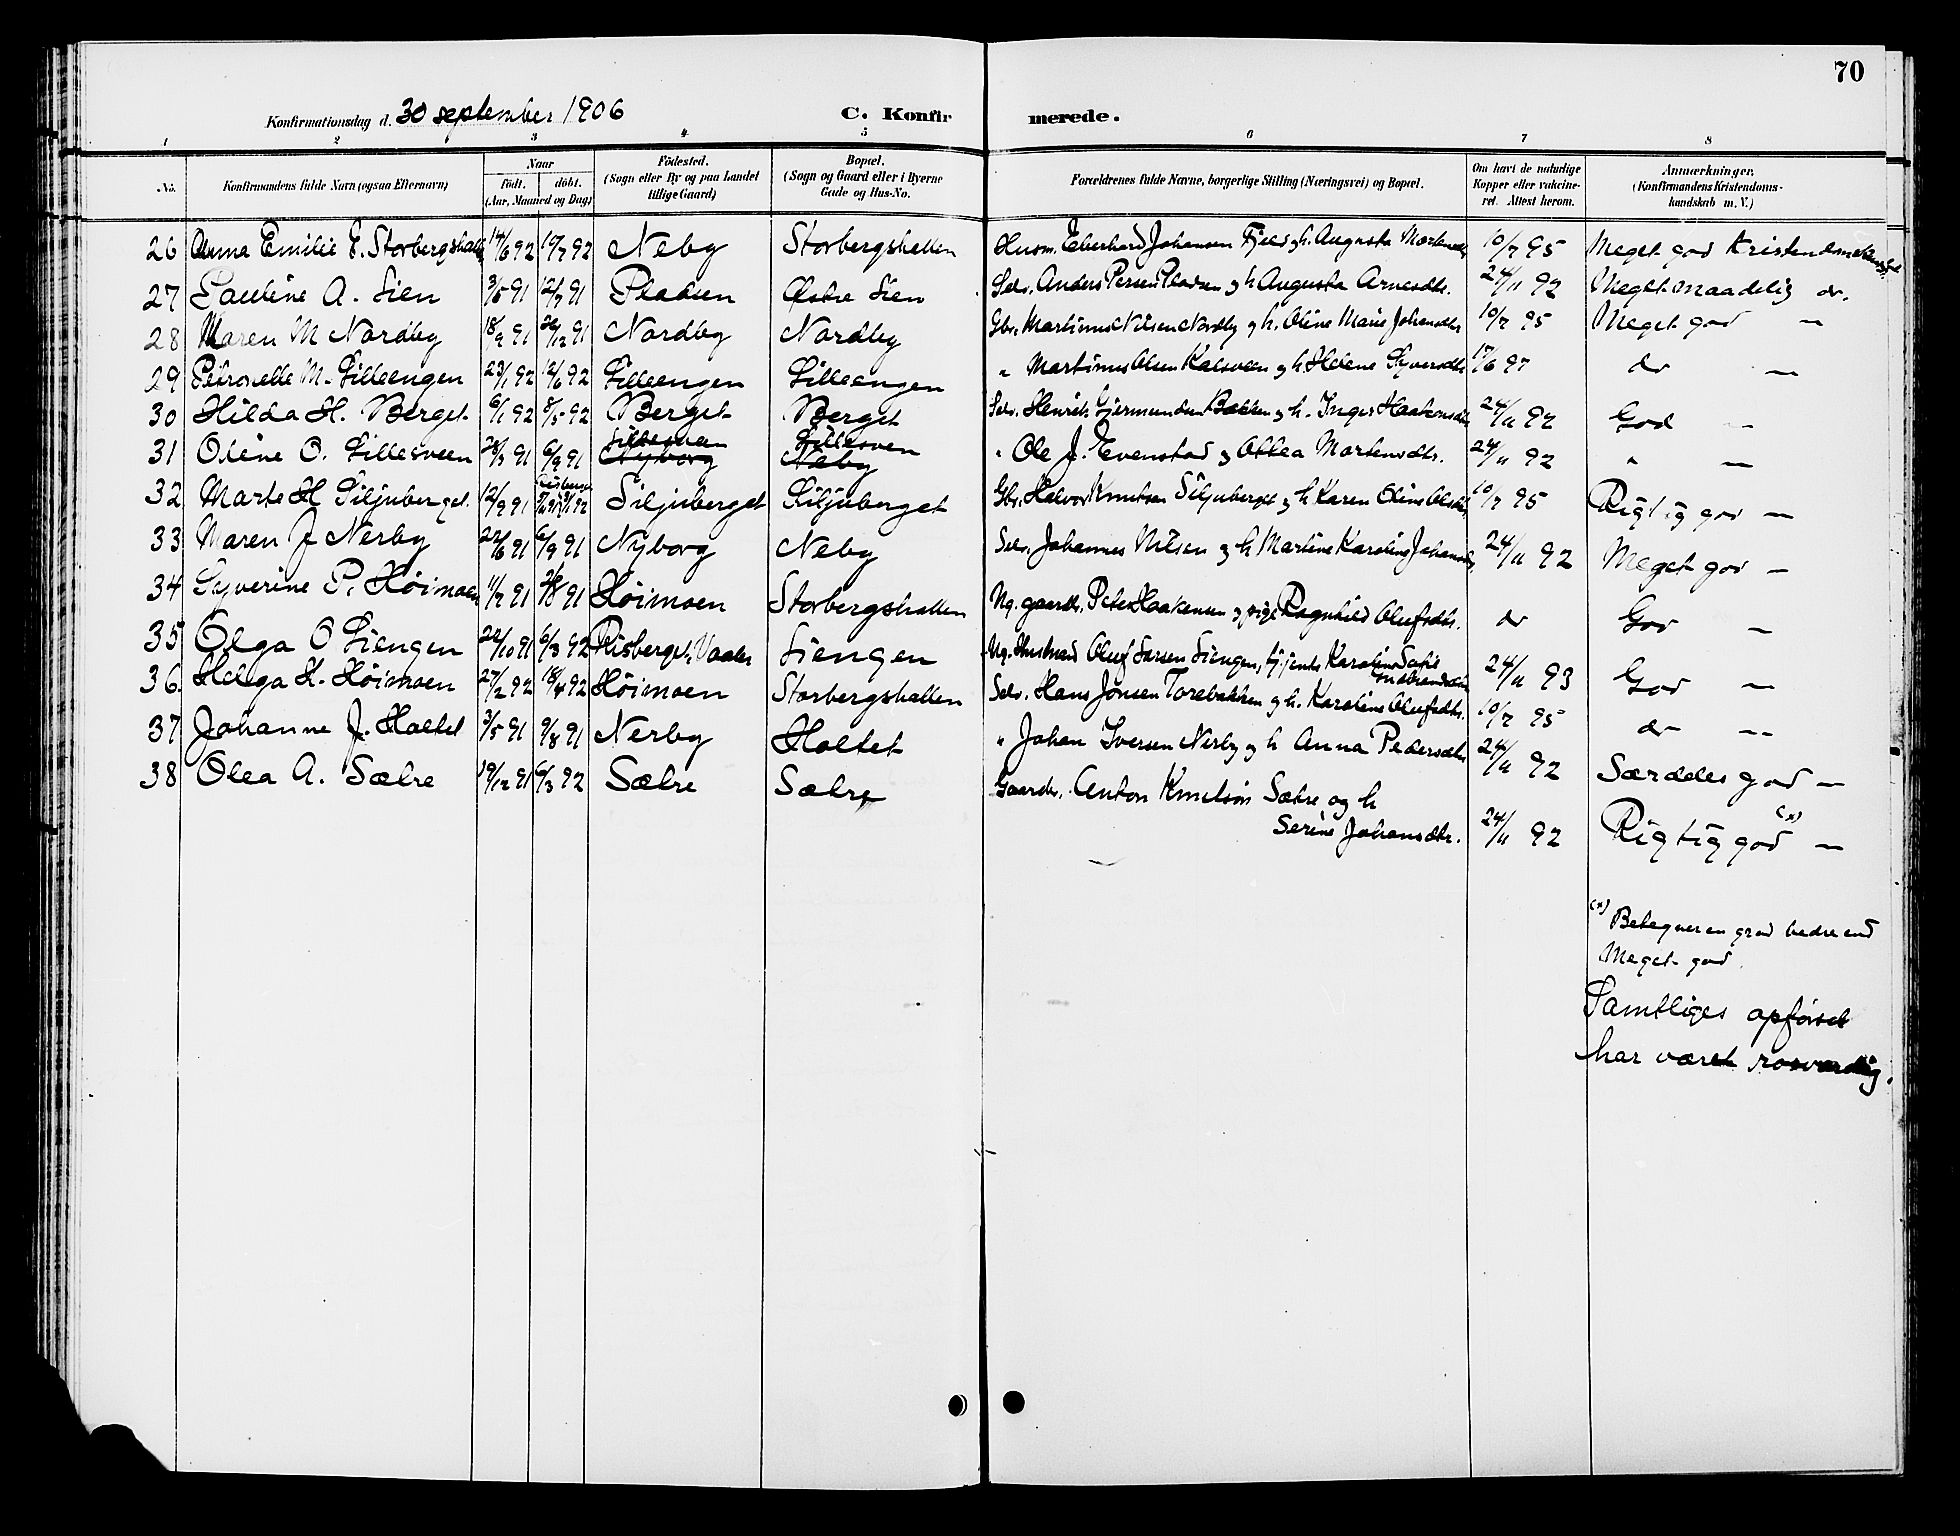 70
Konfirmationsdag d. 30 september 1906 C. Konfir merede.
1 2 3 4 5 6 7 8
No. Konfirmandens fulde Navn (ogsaa Efternavn) Naar født. døbt. (Aar, Maaned og Dag) Fødested. (Sogn eller By og paa Landet tillige Gaard) Bopæl. (Sogn og Gaard eller i Byerne Gade og Hus-No. Forældrenes fulde Navne, borgerlige Stilling (Næringsvei) og Bopæl. Om havt de naturlige Kopper eller vakcineret. Attest herom. Anmærkninger. (Konfirmandens Kristendomskundskab m. V.)
26 Anna Emilie E. Storbergshallen 14/6 92 10/7 92 Neby Storbergshallen Husm. Eberhard Johansen Fjeld og h. Augusta Martensdtr. 10/7 95 Meget god Kristendomskundsk.
27 Pauline A. Lien 3/5 91 12/7 91 Pladsen Østre Lien Selv. Anders Persen Pladsen og h Augusta Arnesdtr. 24/11 92 Meget maadelig do.
28 Maren M Nordby 18/9 91 26/12 91 Nordby Nordby Gbr. Martinus Nilsen Nordby og h. Oline Marie Johansdtr 10/7 95 Meget god —
29 Petronelle M. Lilleengen 23/1 92 12/6 92 Lilleengen Lilleengen " Martinus Olsen Kalsveen og h. Helene Syversdtr 17/6 97 do —
30 Hilda H. Berget 6/1 92 8/5 92 Berget Berget Selv. Henrik Gjermundsen Bakken og h. Inger Haakensdtr 24/11 92 God —
31 Oline O. Lillesveen 28/3 91 6/9 91 Lillesveen Nyborg Lillesveen Neby " Ole J. Evenstad og Othea Martensdtr. 24/11 92 " —
32 Marte H Siljuberget. 12/9 91 Siljuberget Siljuberget Gbr. Halvor Knutsen Siljuberget og h Karen Oline Olsdtr. 10/7 95 Rigtig god —
33 Maren J Nerby 22/6 91 6/9 91 Nyborg Neby Selv. Johannes Nilsen og h Martine Karoline Johansdtr. 24/11 92 Meget god —
34 Syverine P. Høimoen 11/7 91 91 Høimoen Storbergshallen Ug. gaardbr. Peter Haakensen og pige Ragnhild Olufsdtr. do God —
35 Olga O Liengen 22/10 91 6/3 92 Risberget, Vaaler Liengen Ug. Husmand Oluf Larsen Liengen, tj. jente Karoline Sofie 24/11 93 God —
36. Helga H. Høimoen 27/2 92 18/4 92 Høimoen Storbergshallen Selv. Hans Jonsen Torebakken og h. Karoline Olufsdtr. 10/7 95 do —
37 Johanne J. Haltet 3/5 91 9/8 91 Nerby Haltet " Johan Iversen Nerby og h Anna Pedersdtr 24/11 92 Særdeles god —
38 Olea A. Sætre 19/12 91 6/3 92 Sætre Sætre Gaardbr. Anton Knutsøn Sætre og h
Serine Johansdtr. 24/11 92 Rigtig god (x) —
(x) Betegner en grad bedre end
Meget god.
Samtliges opførsel
har været rosværdig.